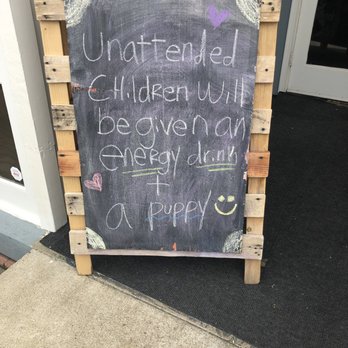 Unattended
Children Will
be given an
energy drink
+
a puppy